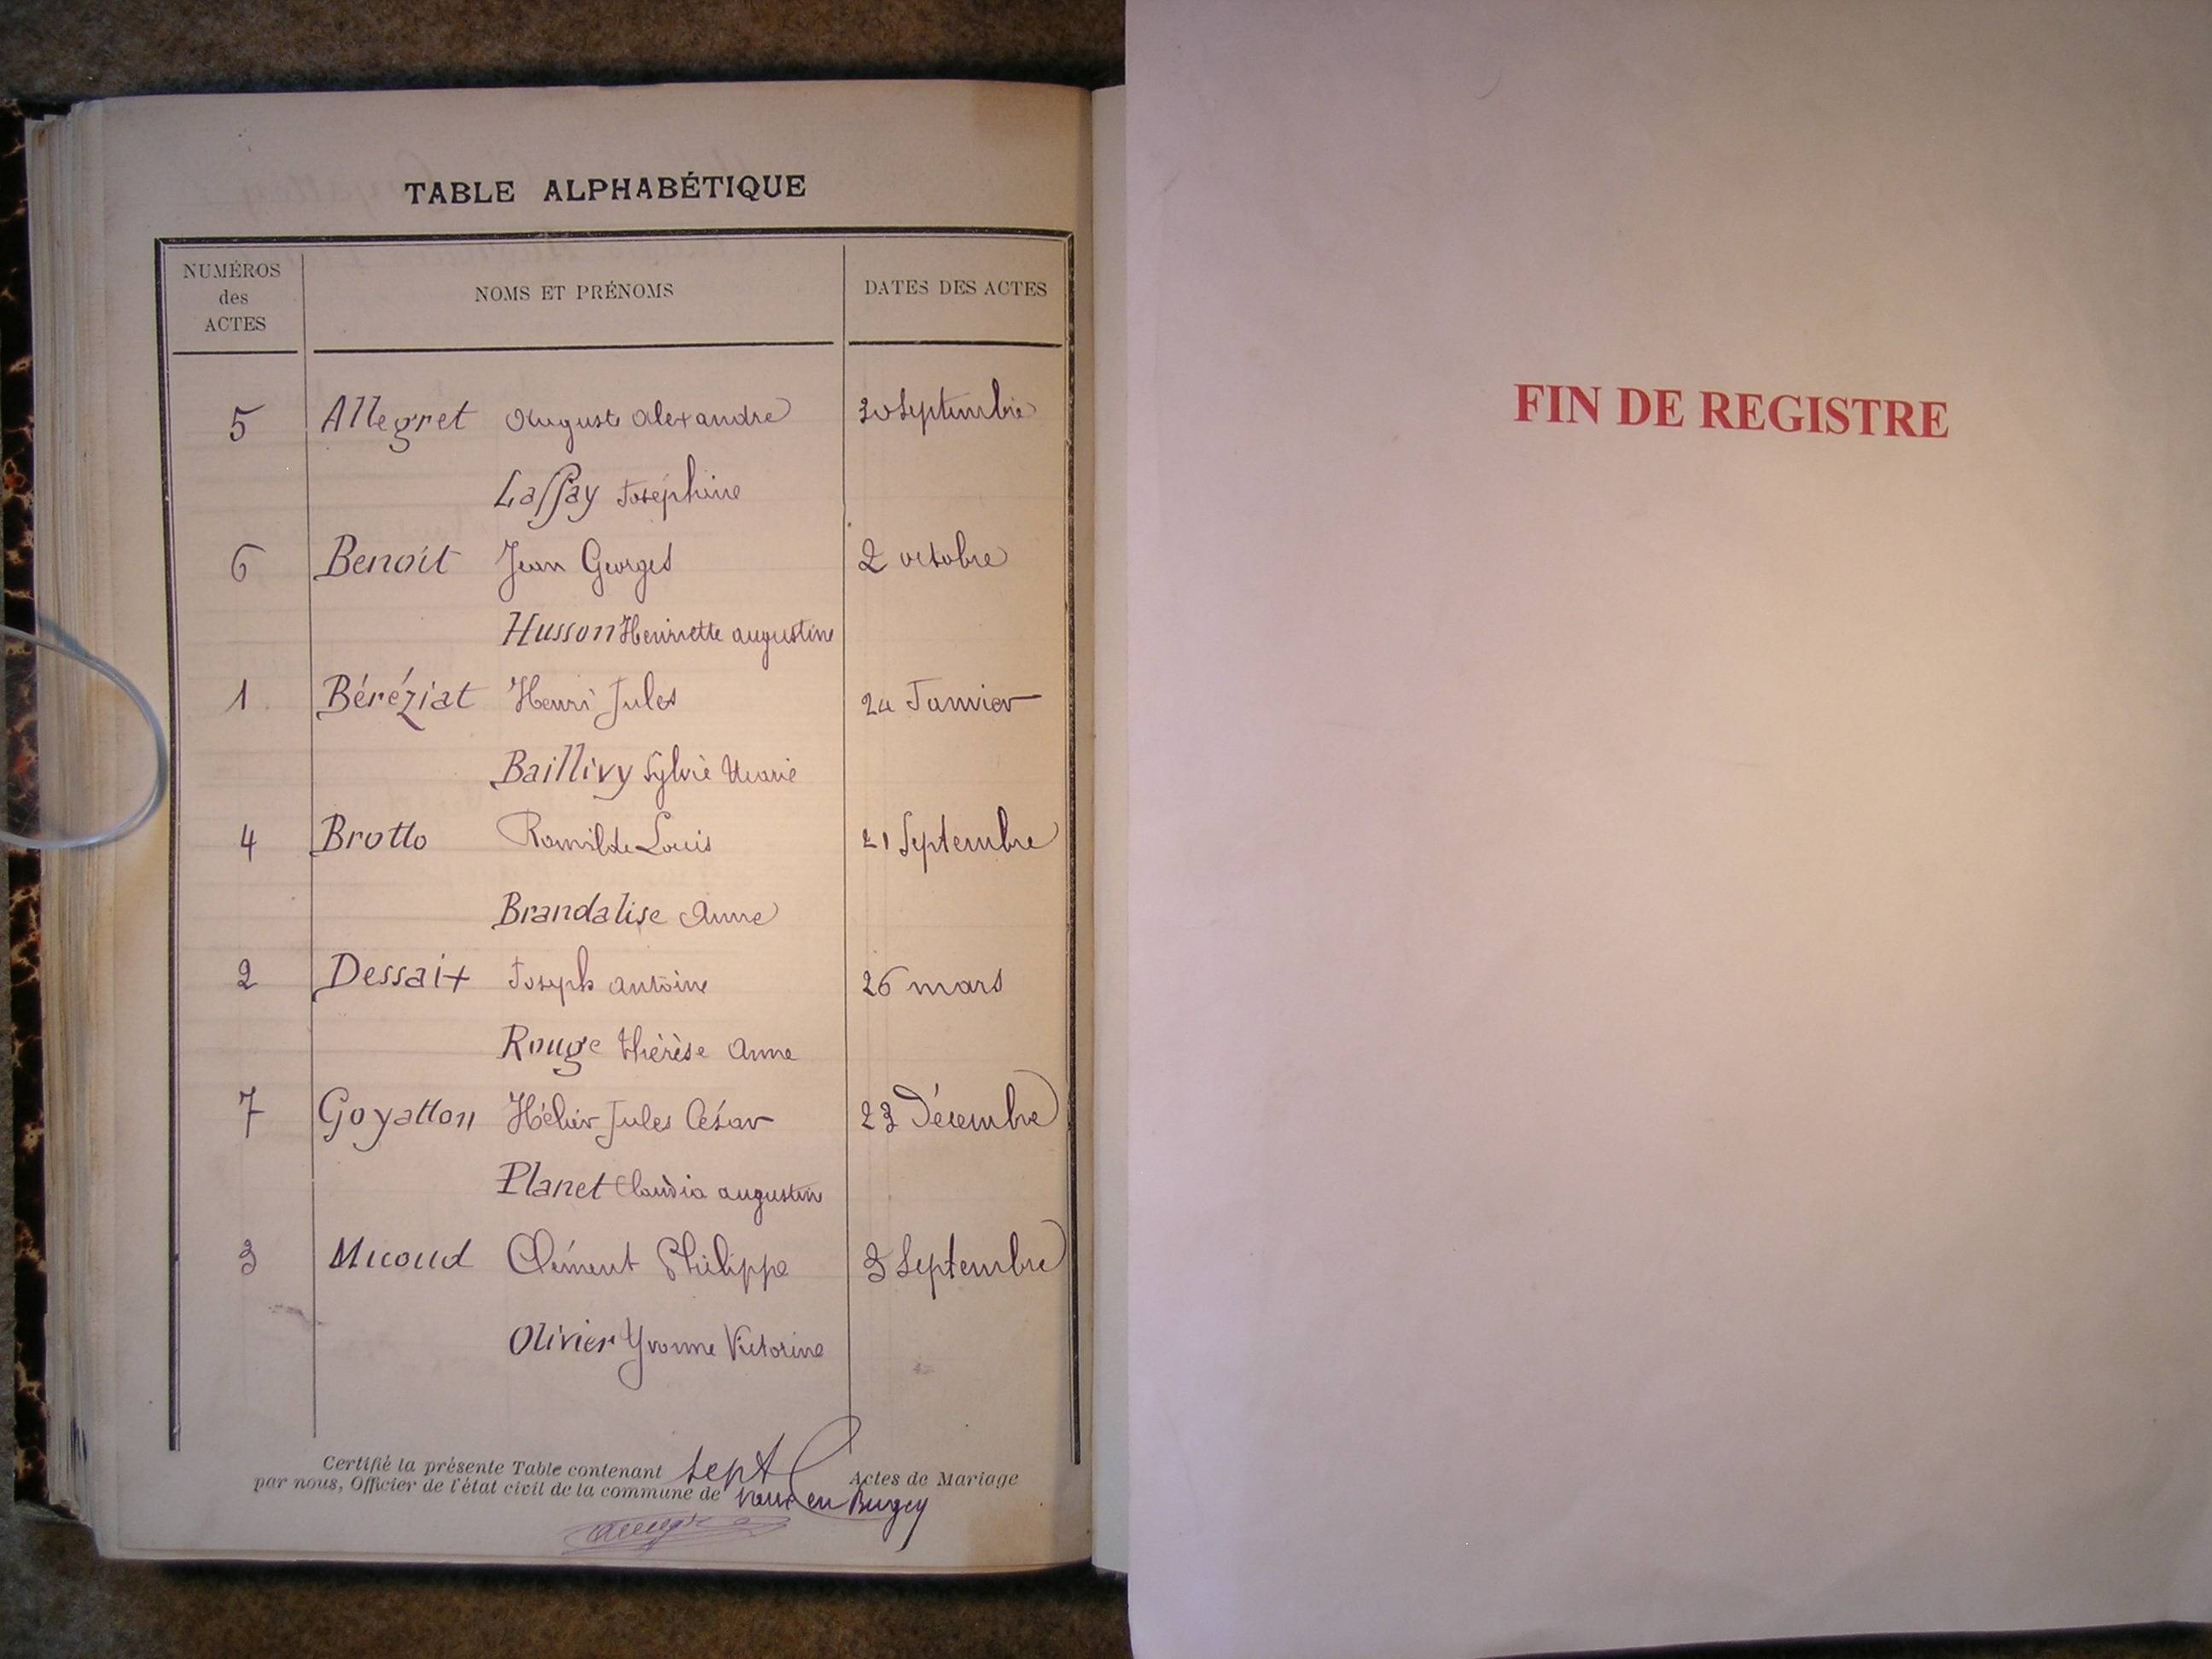 TABLE ALPHABÉTIQUE
NUMÉROS
des
ACTES
NOMS ET PRÉNOMS
DATES DES ACTES
5 Allegret Auguste Alexandre 30 Septembre
Laffay Joséphine
6 Benoît Jean Georges 2 octobre
Husson Henriette augustine
1 Béréziat Henri Jules 24 Janvier
Baillivy Sylvie Marie
4 Brotto Romilde Louis 21 Septembre
Brandalise Anne
2 Dessaix Joseph antoine 26 mars
Rouge thérèse Anne
7 Goyatton Hélier Jules César 23 Décembre
Planet Claudia augustine
3 Micoud Clément Philippe 3 Septembre
Olivier Yvonne Victorine
Certifié la présente Table contenant sept Actes de Mariage
par nous, Officier de l'état civil de la commune de Vaux en Bugey
FIN DE REGISTRE